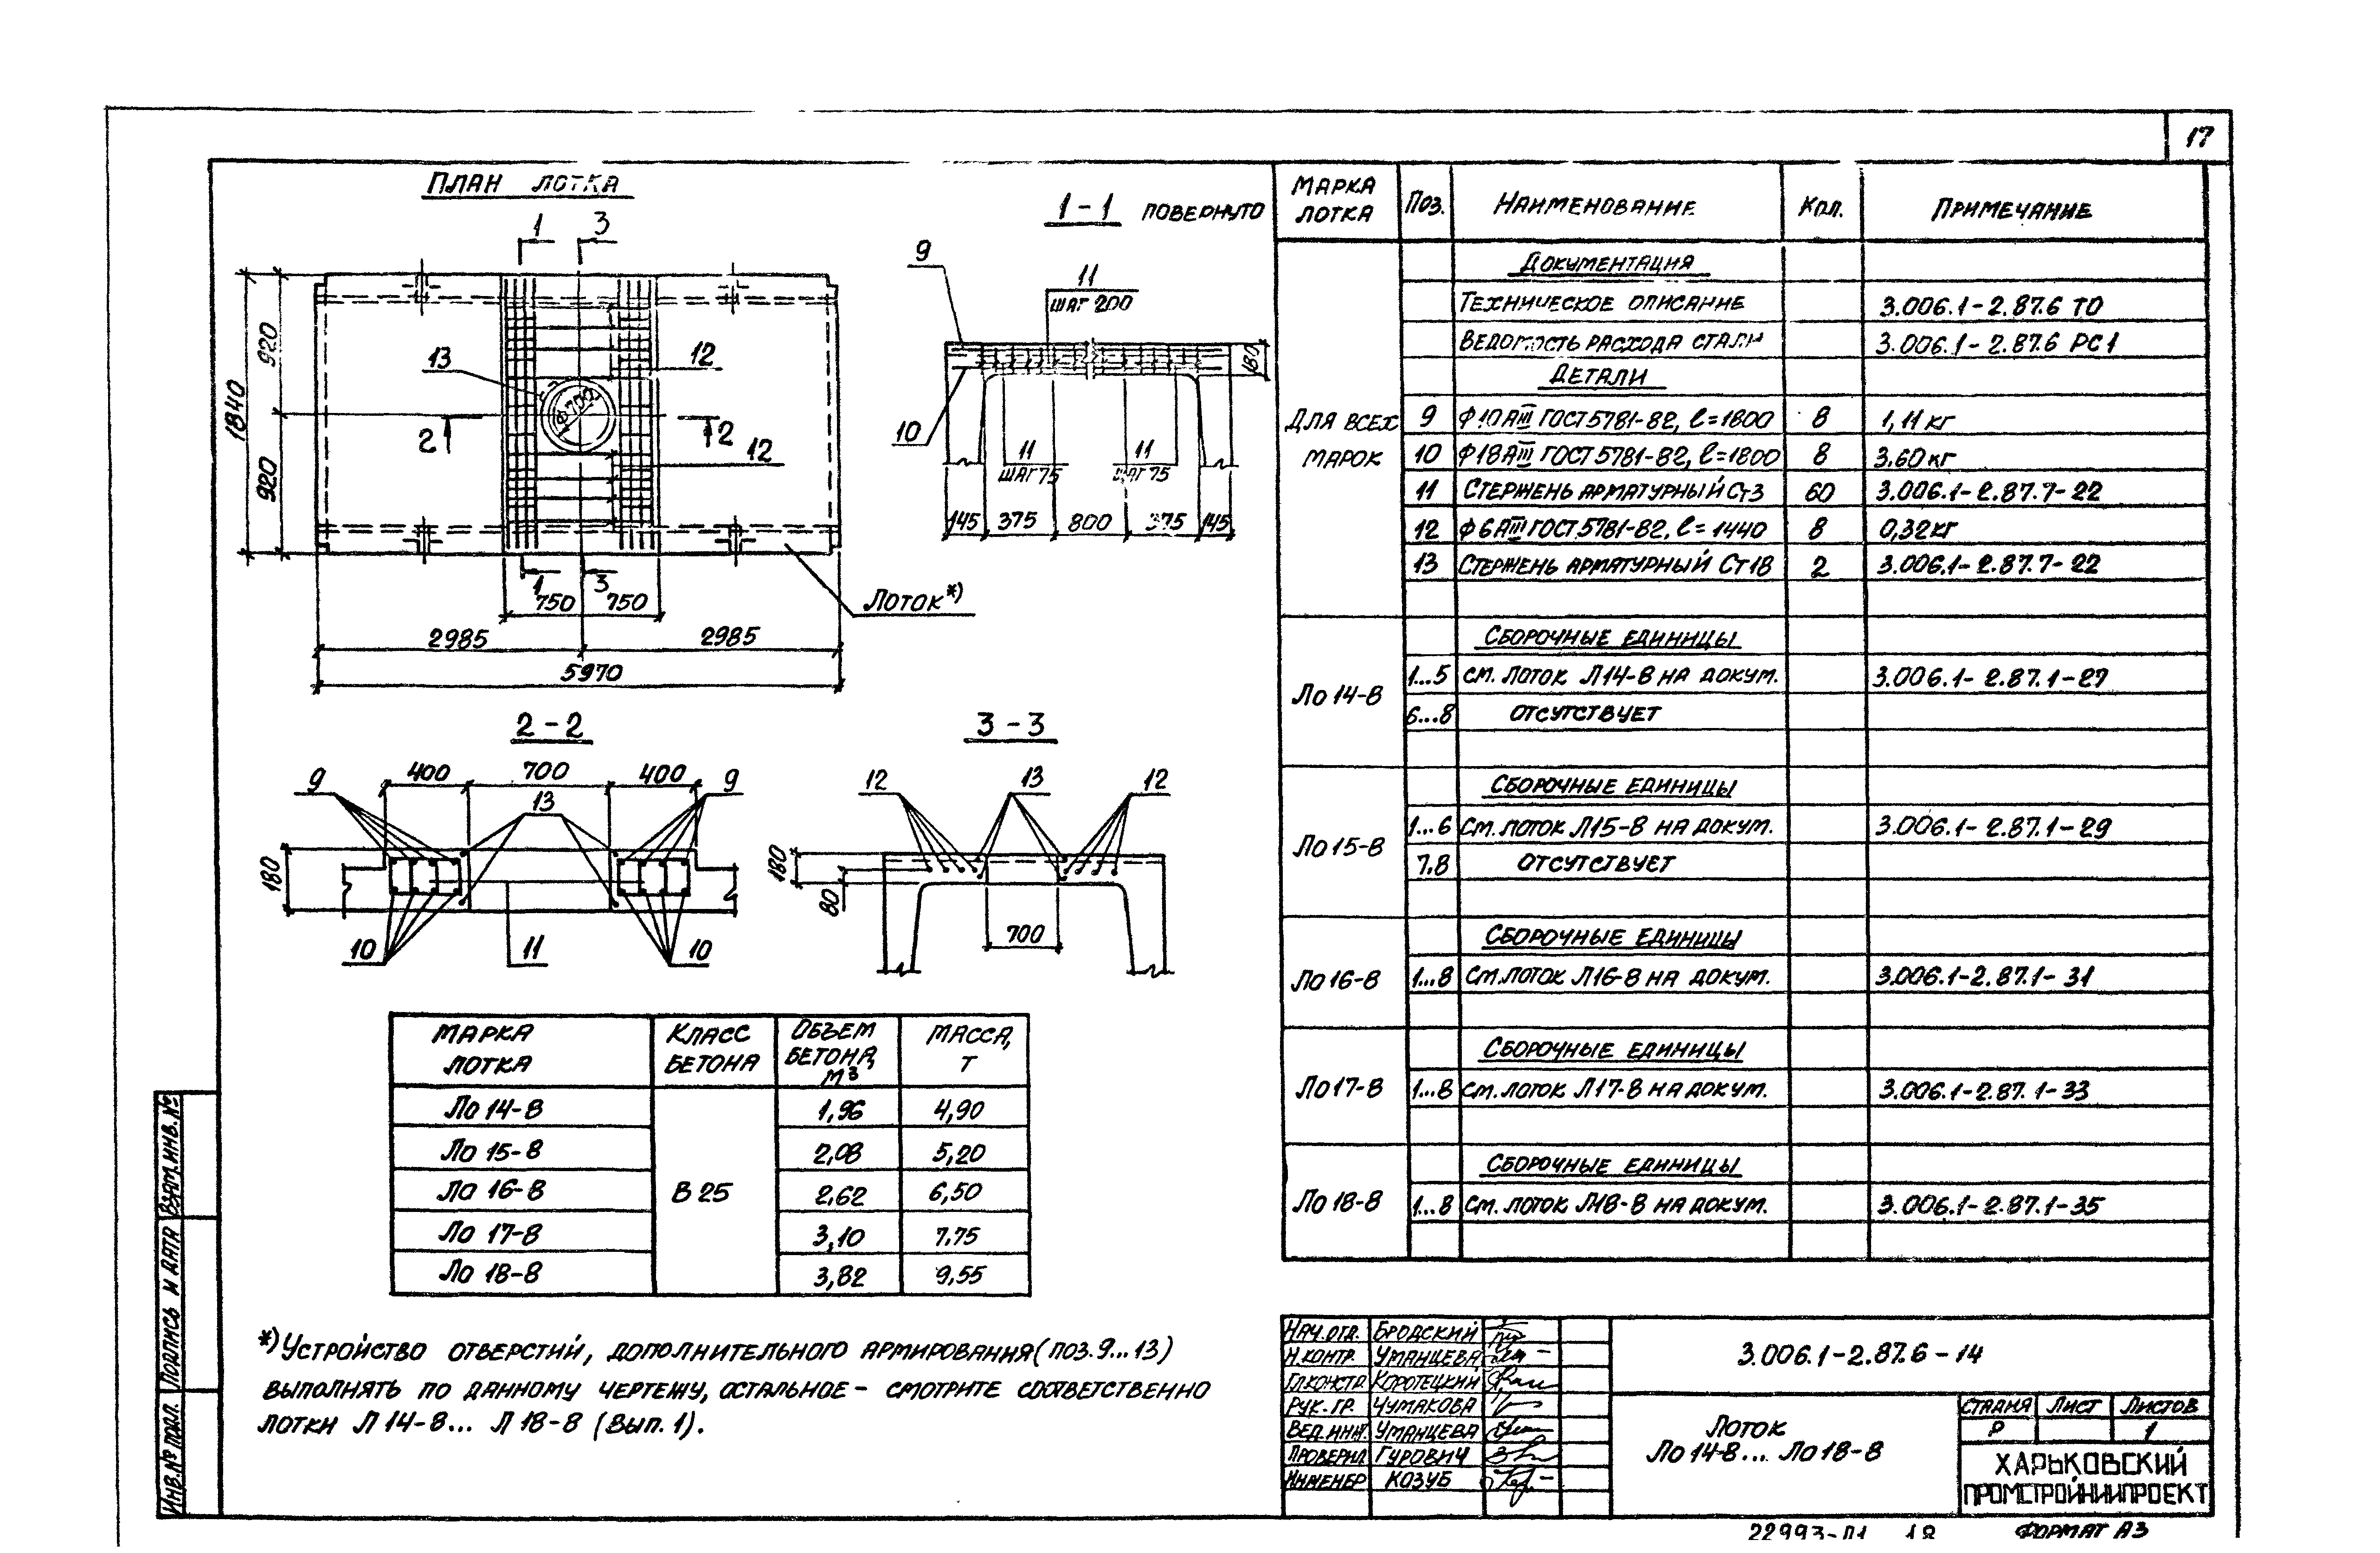 17
ПЛАН ЛОТКА
1 3
13
12
12
Ф700
2 2
920
920
1840
1 3
750 750
Лоток*)
2985 2985
5970
1-1 ПОВЕРНУТО
9
11
ШАГ 200
180
10
11 11
ШАГ 75 ШАГ 75
145 375 800 375 145
2-2
9 400 700 400 9
13
180
10 11 10
3-3
12 13 12
180
80
700
МАРКА ЛОТКА КЛАСС БЕТОНА ОБЪЕМ БЕТОНА, М3 МАССА, Т
Ло 14-8 1,96 4,90
Ло 15-8 2,08 5,20
Ло 16-8 В 25 2,62 6,50
Ло 17-8 3,10 7.75
Ло 18-8 3,82 9,55
*) Устройство отверстий, дополнительного армирования (поз. 9...13)
выполнять по данному чертежу, остальное - смотрите соответственно
лотки Л 14-8... Л 18-8 (Вып. 1).
МАРКА ЛОТКА Поз. Наименование Кол. Примечание
Документация
Техническое описание 3.006.1-2.87.6 ТО
Ведомость расхода стали 3.006.1-2.87.6 РС1
Детали
Для всех марок
9 Ф10АIII ГОСТ 5781-82, l=1800 8 1,11 кг
10 Ф18АIII ГОСТ 5781-82, l=1800 8 3.60 кг
11 Стержень арматурный Ст3 60 3.006.1-2.87.7-22
12 Ф6АIII ГОСТ 5781-82, l=1440 8 0,32 кг
13 Стержень арматурный Ст18 2 3.006.1-2.87.7-22
Сборочные единицы
Ло 14-8 1...5 см. лоток Л14-8 на докум. 3.006.1-2.87.1-27
6...8 отсутствует
Сборочные единицы
Ло 15-8 1...6 См. лоток Л15-8 на докум. 3.006.1-2.87.1-29
7.8 отсутствует
Сборочные единицы
Ло 16-8 1...8 См. лоток Л16-8 на докум. 3.006.1-2.87.1-31
Сборочные единицы
Ло 17-8 1...8 См. лоток Л17-8 на докум. 3.006.1-2.87.1-33
Сборочные единицы
Ло 18-8 1...8 См. лоток Л18-8 на докум. 3.006.1-2.87.1-35
Нач. отд. Бродский
Н.контр. Уманцева
Гл.констр. Коротецкий
Рук. гр. Чумакова
Вед. инж. Уманцева
Проверил Гурович
Инженер Козуб
3.006.1-2.87.6-14
Лоток
Ло 14-8... Ло 18-8
Стадия Лист Листов
Р 1
ХАРЬКОВСКИЙ
ПРОМСТРОЙНИИПРОЕКТ
22993-01 18 Формат А3
Инв.№ подл. Подпись и дата Взам.инв.№